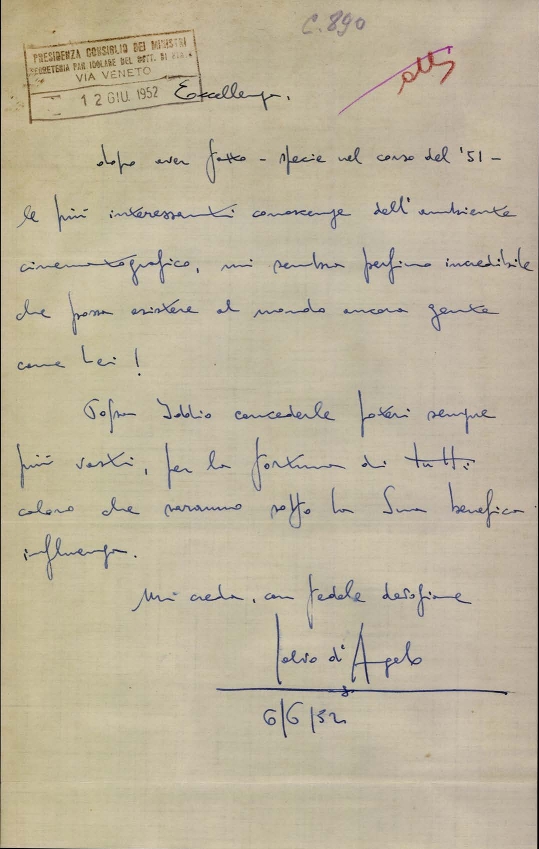 C. 890
PRESIDENZA CONSIGLIO DEI MINISTRI
VIA VENETO
12 GIU. 1952
Eccellenza,
dopo aver fatto - specie nel corso del '51 -
le più interessanti conoscenze dell'ambiente
cinematografico, mi sembra perfino incredibile
che possa esistere al mondo ancora gente
come Lei!
Possa Iddio concederLe poteri sempre
più vasti, per la fortuna di tutti
coloro che saranno sotto la Sua benefica
influenza.
Mi creda, con fedele devozione
d'Angelo
6/6/52